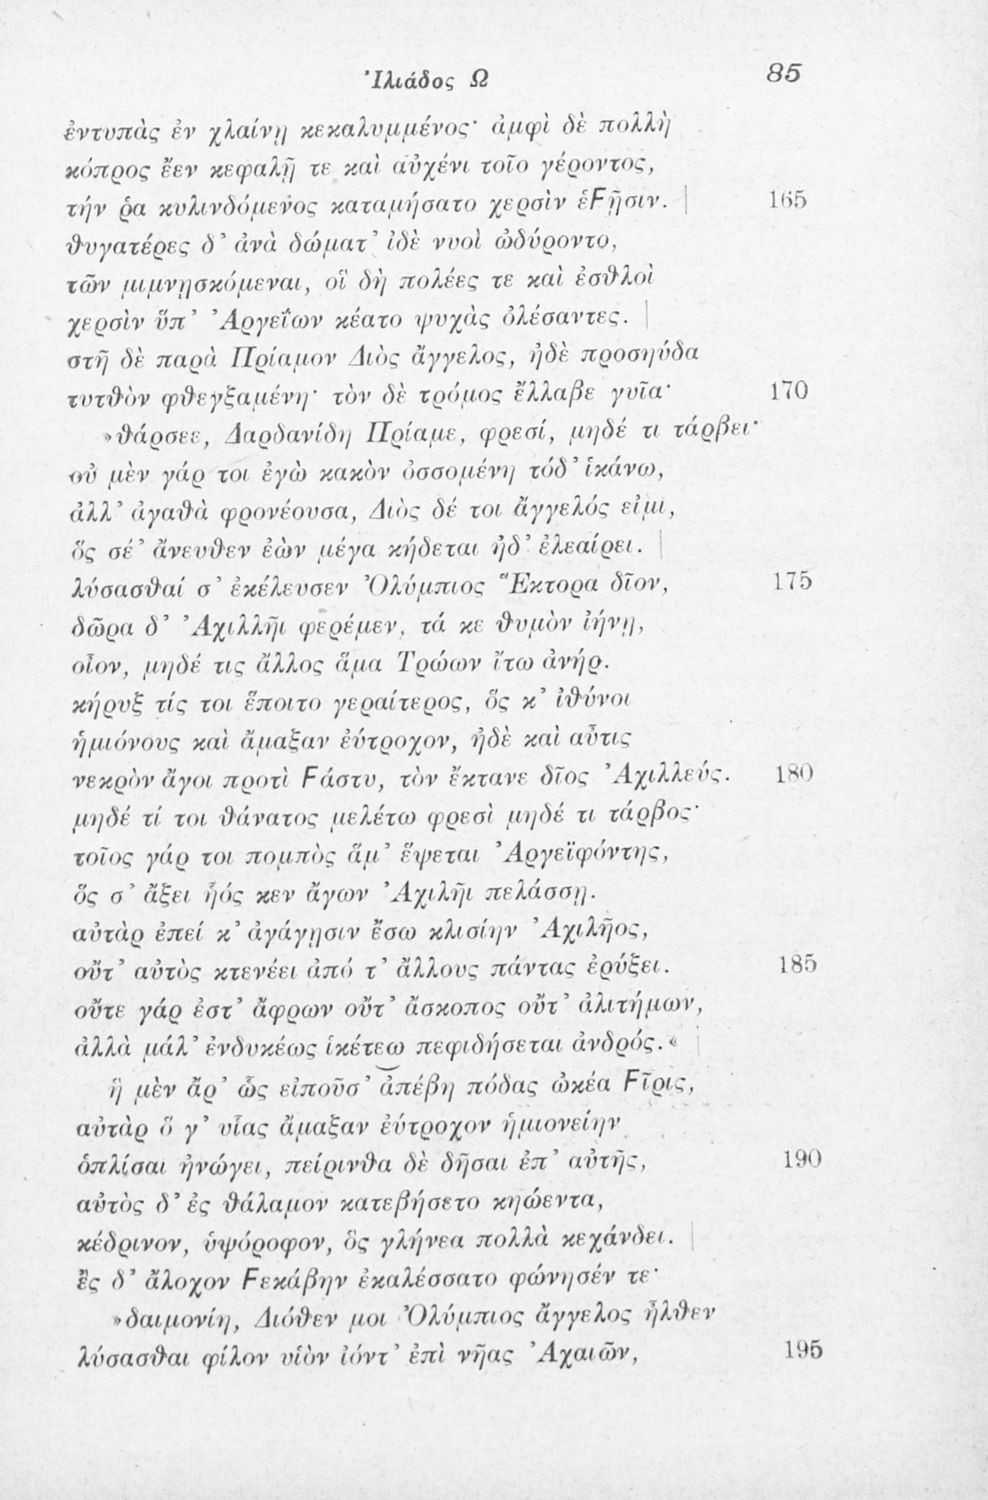 Ἰλιάδος Ω 85
ἐντυπὰς ἐν χλαίνῃ κεκαλυμμένος· ἀμφὶ δὲ πολλὴ
κόπρος ἔεν κεφαλῇ τε καὶ αὐχένι τοῖο γέροντος,
τήν ῥα κυλινδόμενος καταμήσατο χερσὶν ἑϜῇσιν. 165
θυγατέρες δ' ἀνὰ δώματ' ἰδὲ νυοὶ ὠδύροντο,
τῶν μιμνησκόμεναι, οἳ δὴ πολέες τε καὶ ἐσθλοὶ
χερσὶν ὕπ' Ἀργεΐων κέατο ψυχὰς ὀλέσαντες.
στῆ δὲ παρὰ Πρίαμον Διὸς ἄγγελος, ἠδὲ προσηύδα
τυτθὸν φθεγξαμένη· τὸν δὲ τρόμος ἔλλαβε γυῖα· 170
»θάρσεε, Δαρδανίδη Πρίαμε, φρεσί, μηδέ τι τάρβει·
οὐ μὲν γάρ τοι ἐγὼ κακὸν ὀσσομένη τόδ' ἱκάνω,
ἀλλ' ἀγαθὰ φρονέουσα, Διὸς δέ τοι ἄγγελός εἰμι,
ὅς σέ' ἄνευθεν ἐὼν μέγα κήδεται ἠδ' ἐλεαίρει.
λύσασθαί σ' ἐκέλευσεν Ὀλύμπιος Ἕκτορα δῖον, 175
δῶρα δ' Ἀχιλλῆι φερέμεν, τά κε θυμὸν ἰήνῃ,
οἶον, μηδέ τις ἄλλος ἅμα Τρώων ἴτω ἀνήρ.
κήρυξ τίς τοι ἕποιτο γεραίτερος, ὅς κ' ἰθύνοι
ἡμιόνους καὶ ἄμαξαν ἐύτροχον, ἠδὲ καὶ αὖτις
νεκρὸν ἄγοι προτὶ Ϝάστυ, τὸν ἔκτανε δῖος Ἀχιλλεύς. 180
μηδέ τί τοι θάνατος μελέτω φρεσὶ μηδέ τι τάρβος·
τοῖος γάρ τοι πομπὸς ἅμ' ἕψεται Ἀργεϊφόντης,
ὅς σ' ἄξει ἧός κεν ἄγων Ἀχιλῆι πελάσσῃ.
αὐτὰρ ἐπεί κ' ἀγάγῃσιν ἔσω κλισίην Ἀχιλῆος,
οὔτ' αὐτὸς κτενέει ἀπό τ' ἄλλους πάντας ἐρύξει. 185
οὔτε γάρ ἐστ' ἄφρων οὔτ' ἄσκοπος οὔτ' ἀλιτήμων,
ἀλλὰ μάλ' ἐνδυκέως ἱκέτεω πεφιδήσεται ἀνδρός.«
ἡ μὲν ἄρ' ὣς εἰποῦσ' ἀπέβη πόδας ὠκέα Ϝῖρις,
αὐτὰρ ὅ γ' υἷας ἄμαξαν ἐύτροχον ἡμιονείην
ὁπλίσαι ἠνώγει, πείρινθα δὲ δῆσαι ἐπ' αὐτῆς, 190
αὐτὸς δ' ἐς θάλαμον κατεβήσετο κηώεντα,
κέδρινον, ὑψόροφον, ὃς γλήνεα πολλὰ κεχάνδει.
ἒς δ' ἄλοχον Ϝεκάβην ἐκαλέσσατο φώνησέν τε·
»δαιμονίη, Διόθεν μοι Ὀλύμπιος ἄγγελος ἦλθεν
λύσασθαι φίλον υἱὸν ἰόντ' ἐπὶ νῆας Ἀχαιῶν, 195